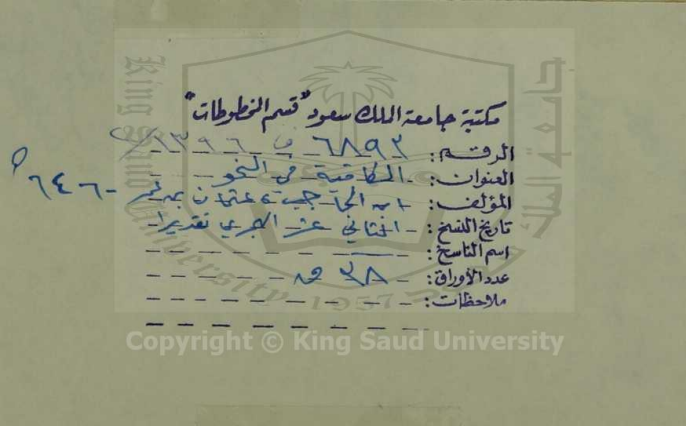 مكتبة جامعة الملك سعود "قسم المخطوطات"
الرقم: ٦٨٩٣ ف ١٣٩٦/
العنوان: الكافية في النحو
المؤلف: ابن الحاجب، عثمان بن عمر - ٦٤٦هـ
تاريخ النسخ: الثاني عشر الهجري تقديرا
اسم الناسخ:
عدد الأوراق: ٣٨ ق
ملاحظات:
King Saud University
1957
Copyright © King Saud University